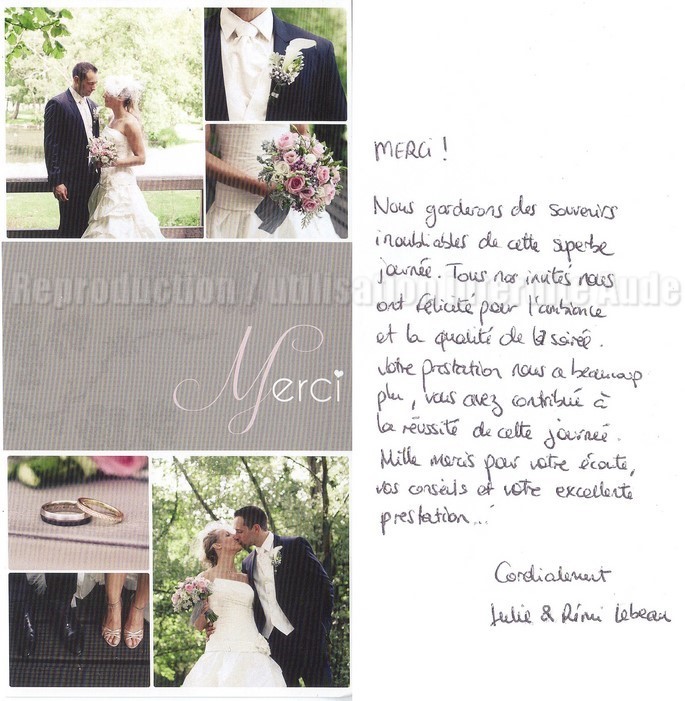 Merci
MERCI !
Nous garderons des souvenirs
inoubliables de cette superbe
journée. Tous nos invités nous
ont félicité pour l'ambiance
et la qualité de la soirée.
Votre prestation nous a beaucoup
plu, vous avez contribué à
la réussite de cette journée.
Mille mercis pour votre écoute,
vos conseils et votre excellente
prestation...
Cordialement
Julie & Rémi Lebeau
Reproduction / utilisation Aude